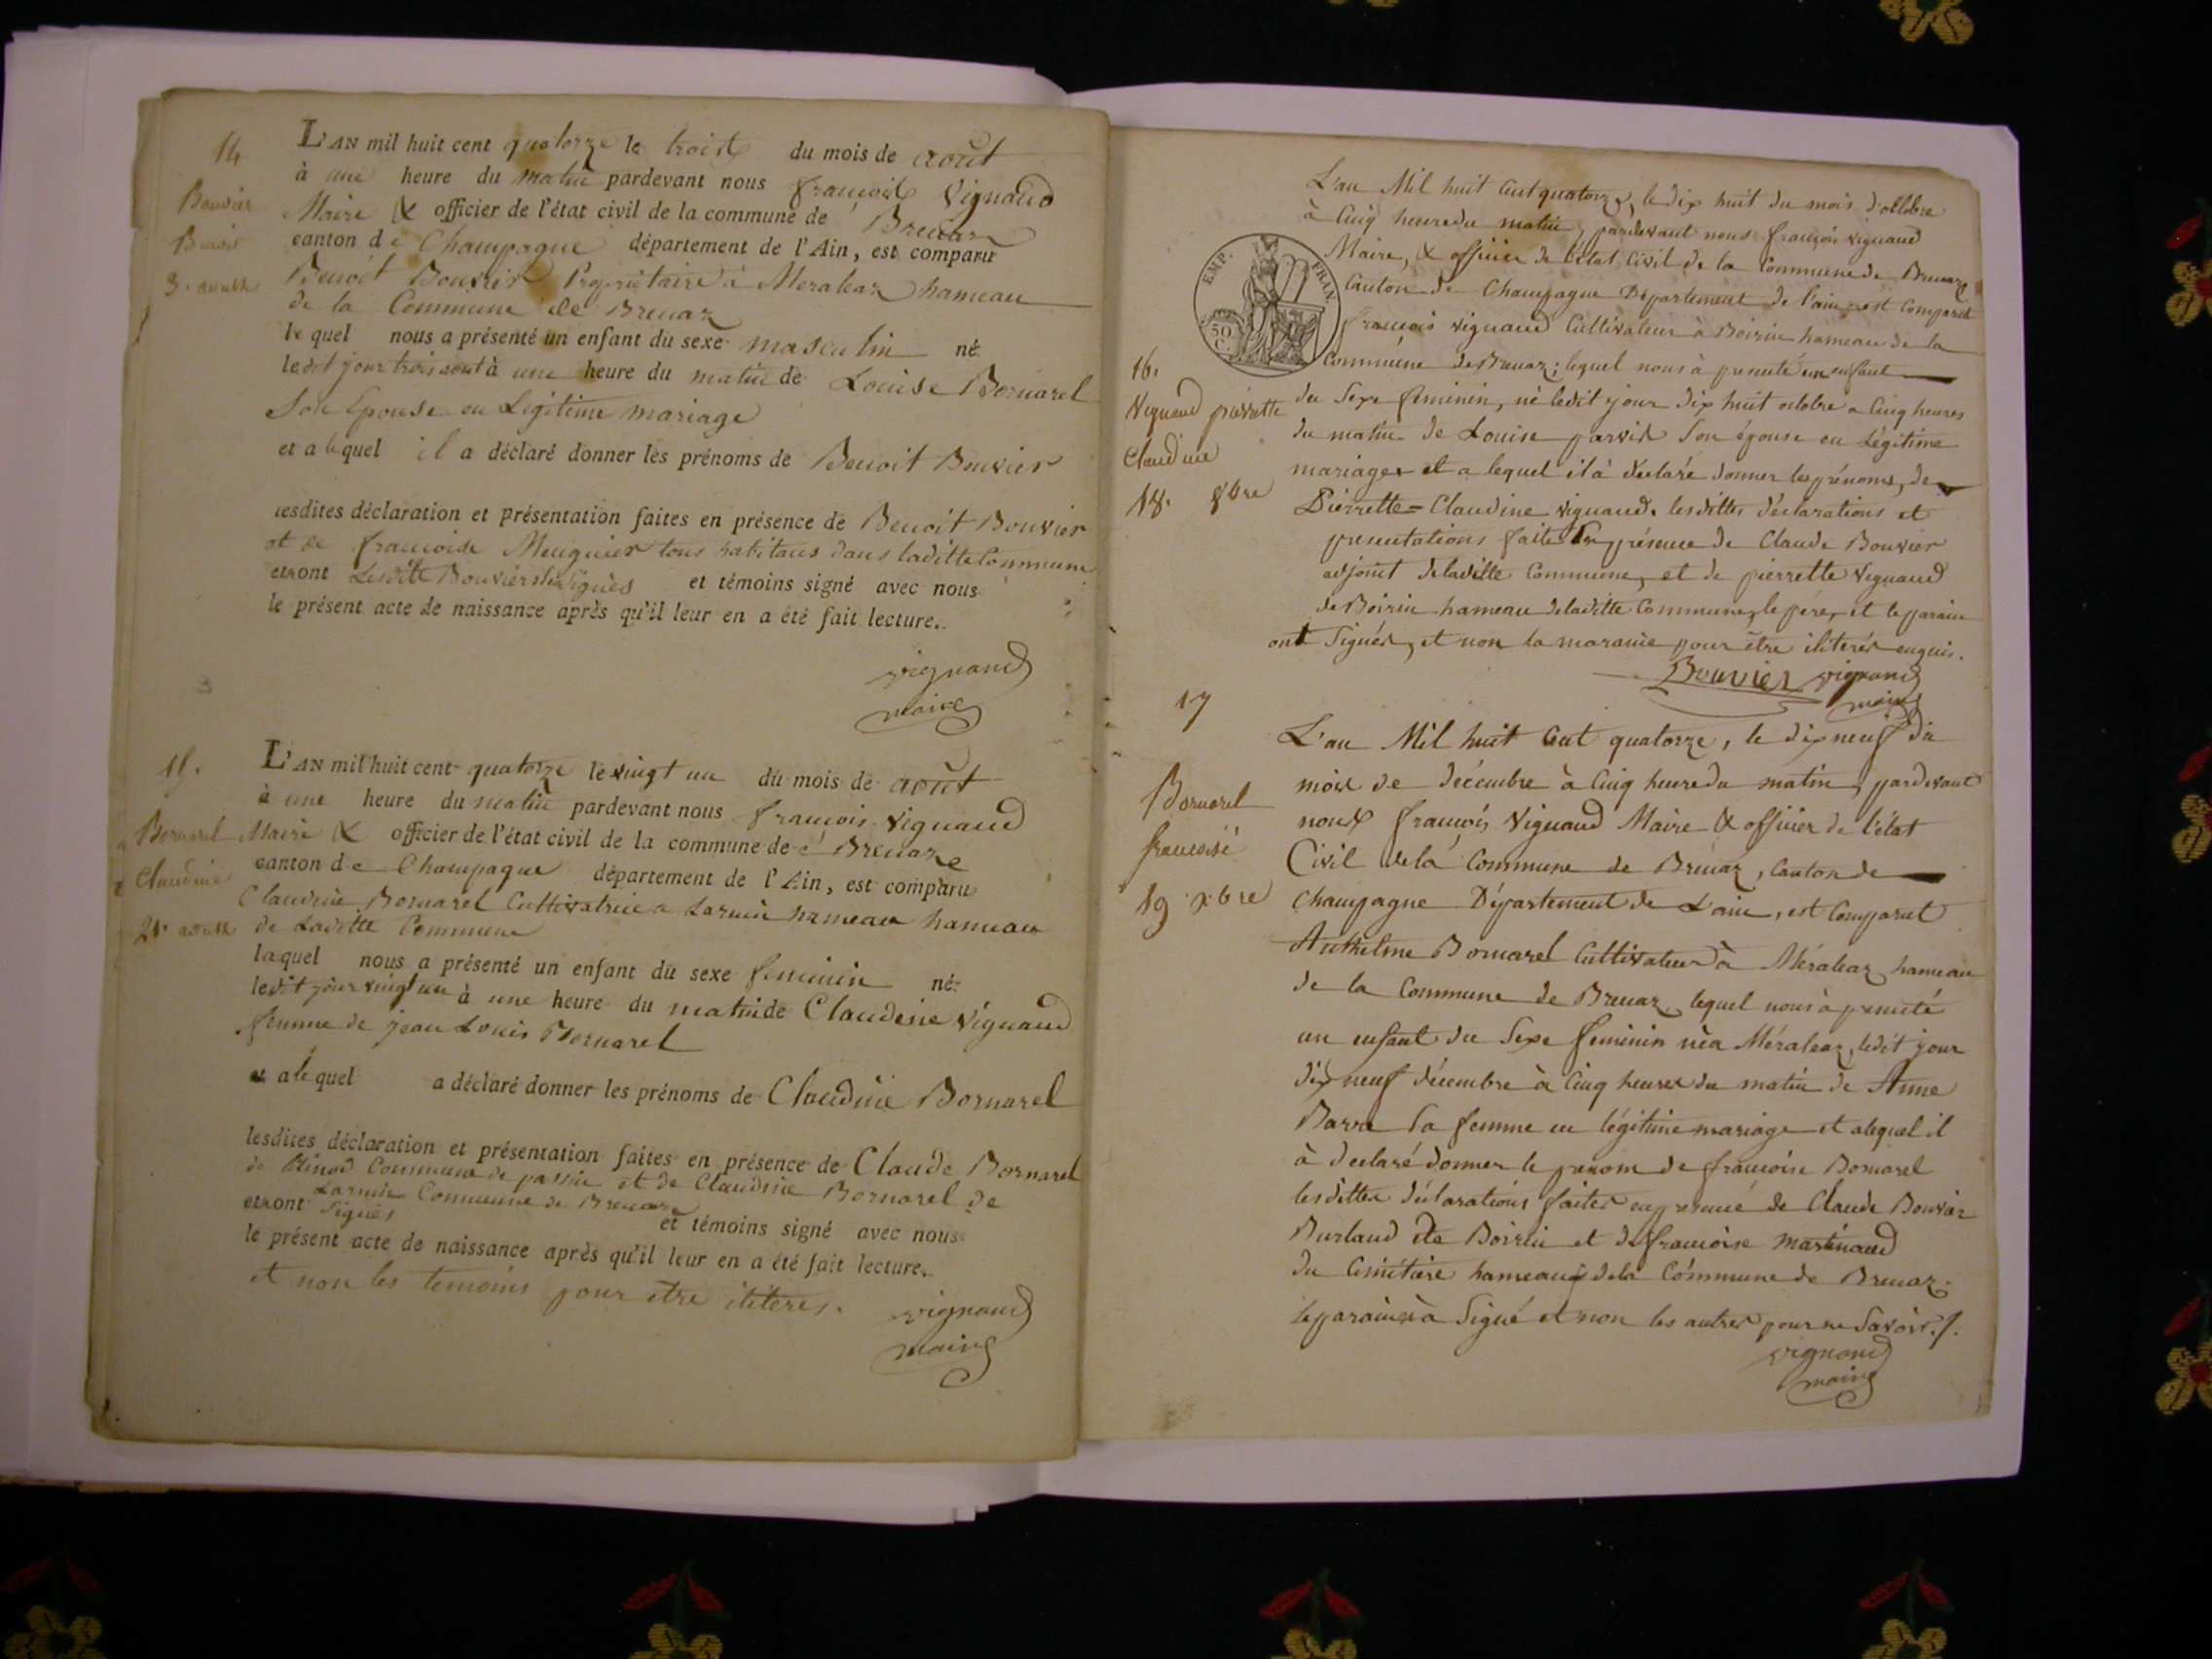 14
Bouvier
Benoit
3. aoust
L'AN mil huit cent quatorze le trois du mois de août
à une heure du matin pardevant nous françois Vignaud
Maire & officier de l'état civil de la commune de Brenaz
canton de Champagne département de l'Ain, est comparu
Benoit Bouvier Propriétaire à Meraleaz hameau
de la Commune de Brenaz
lequel nous a présenté un enfant du sexe masculin né
ledit jour trois aout à une heure du matin de Louise Bornarel
Son Epouse en Legitime mariage
et a lequel il a déclaré donner les prénoms de Benoit Bouvier
lesdites déclaration et présentation faites en présence de Benoit Bouvier
et de francoise Meugnier tous habitans dans laditte Commune
et ont Lesdits Bouvier Signés et témoins signé avec nous
le présent acte de naissance après qu'il leur en a été fait lecture.
vignaud
maire
15.
Bornarel
Claudine
21. aoust
L'AN mil huit cent quatorze le vingt un du mois de août
à une heure du matin pardevant nous francois Vignaud
Maire & officier de l'état civil de la commune de Brenaze
canton de Champagne département de l'Ain, est comparu
Claudine Bornarel Cultivatrice a Larnin hameau hameau
de Laditte Commune
laquel nous a présenté un enfant du sexe feminin né
ledit jour vingt un à une heure du matin de Claudine Vignaud
femme de jean Louis Bornarel
et a lequel a déclaré donner les prénoms de Claudine Bornarel
lesdites déclaration et présentation faites en présence de Claude Bornarel
de Commune de passin et de Claudine Bornarel de
Larnin Commune de Brenaze
et ont Signés et témoins signé avec nous
le présent acte de naissance après qu'il leur en a été fait lecture.
et non les temoins pour etre iliteres.
vignaud
maire
L'an Mil huit Cent quatorze, le dix huit du mois d'octobre
à Cinq heure du matin, pardevant nous françois vignaud
Maire, & officier de l'état Civil de la Commune de Brenaz
Canton de Champagne Département de l'ain, est Comparut
EMP. FRAN.
50
C.
francois vignaud Cultivateur à Boirin hameau de la
Commune de Brenaz; lequel nous à presenté un enfant
16.
Vignaud pierrette
Claudine
18. 8bre
du Sexe feminin, né ledit jour dix huit octobre a Cinq heures
du matin de Louise parvis Son épouse en Légitime
mariage et a lequel il à déclaré donner les prénoms, de
Pierrette = Claudine vignaud. lesdittes déclarations et
presentations faites En présence de Claude Bouvier
adjoint de laditte Commune, et de pierrette Vignaud
de Boirin hameau de laditte Commune, le père, et le parain
ont Signés, et non la maraine pour être iliterés enquis.
Bouvier vignaud
maire
17
Bornarel
francoise
19 xbre
L'an Mil huit Cent quatorze, le dix neuf du
mois de décembre à Cinq heure du matin, pardevant
nous francois Vignaud Maire & officier de l'état
Civil de la Commune de Brenaz, Canton de
Champagne Département de L'ain, est Comparut
Anthelme Bornarel Cultivateur à Méraleaz hameau
de la Commune de Brenaz lequel nous à presenté
un enfant du Sexe feminin né a Méraleaz, ledit jour
dix neuf décembre à Cinq heures du matin de Anne
Barra Sa femme en légitime mariage et alequel il
à declaré donner le prenom de francoise Bornarel
lesdittes déclarations faites en presence de Claude Bouvier
Burlaud de Boirin et de francoise Martinaud
du Cimitière hameaux de la Commune de Brenaz;
le parain à Signé et non les autres pour ne Savoir./.
vignaud
maire